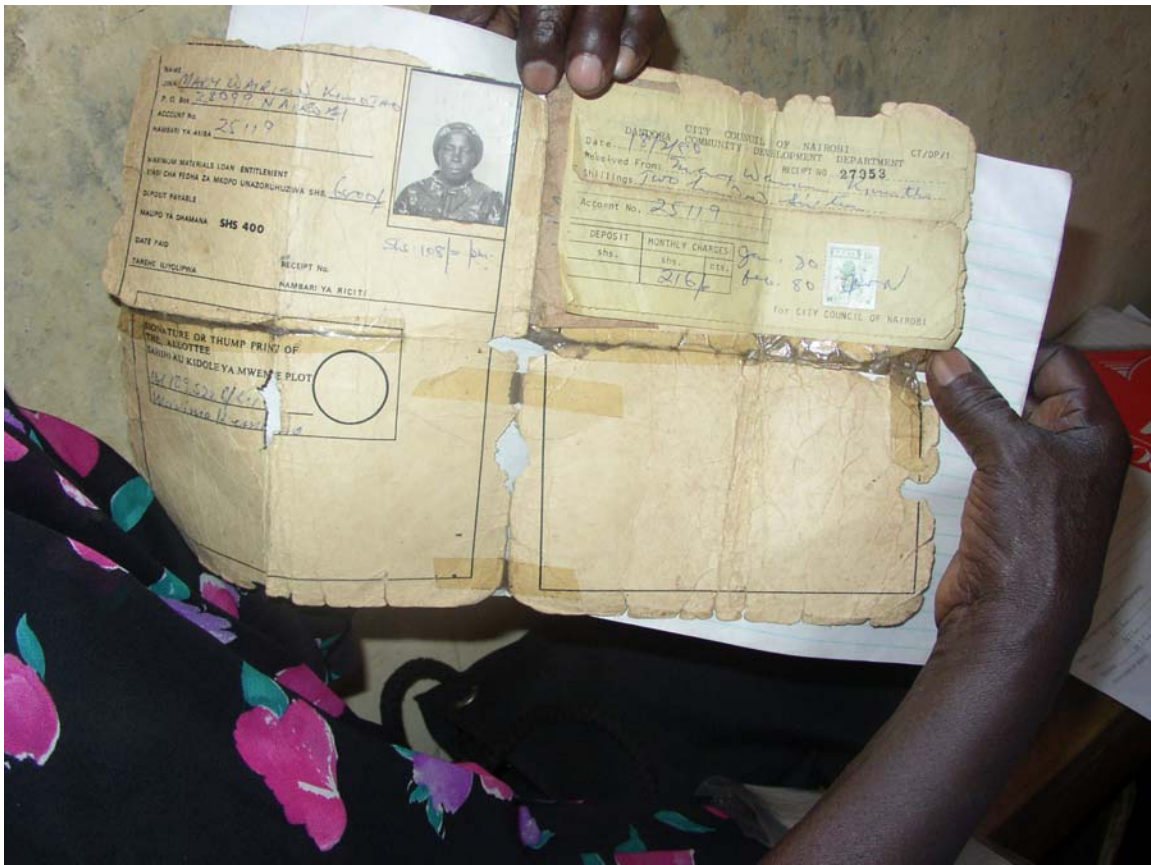 NAME
JINA MARY WAIRIMU
P. O. Box 28099 NAIROBI
ACCOUNT No.
NAMBARI YA AKIBA 25119
MAXIMUM MATERIALS LOAN ENTITLEMENT
KIASI CHA FEDHA ZA MKOPO UNAZORUHUZIWA SHS.
DEPOSIT PAYABLE
MALIPO YA DHAMANA SHS 400
DATE PAID
TAREHE ILIYOLIPWA
RECEIPT No.
NAMBARI YA RICITI
Shs. 108/= pm.
SIGNATURE OR THUMP PRINT OF
THE ALLOTTEE
SAHIHI AU KIDOLE YA MWENYE PLOT
CITY COUNCIL OF NAIROBI
DANDORA COMMUNITY DEVELOPMENT DEPARTMENT
CT/DP/1
Date
RECEIPT NO. 27953
Received From:
Shillings Two
Account No. 25119
DEPOSIT MONTHLY CHARGES
shs. shs. cts.
216/=
Jan. 80
Feb. 80
for CITY COUNCIL OF NAIROBI